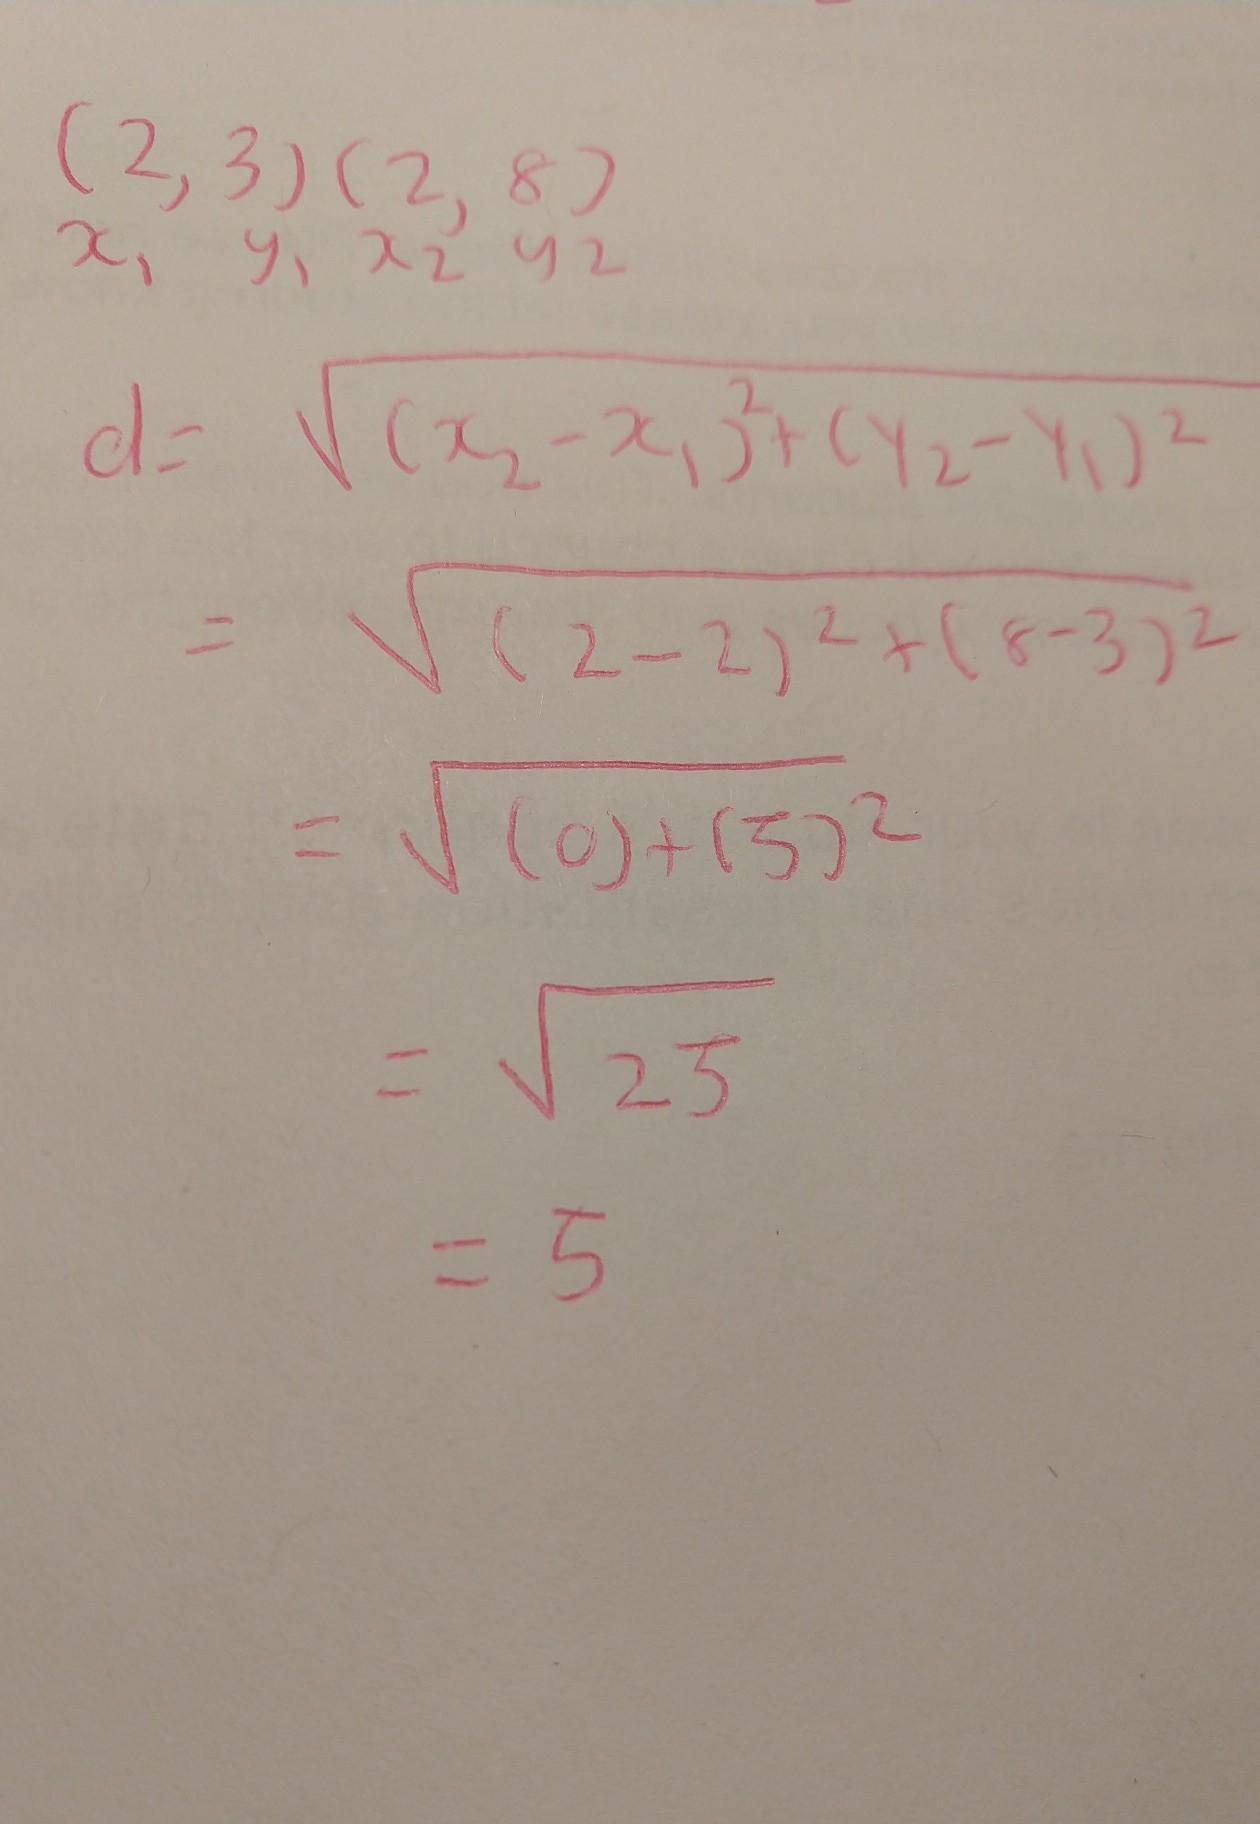 (2, 3) (2, 8)
x₁ y₁ x₂ y₂
d= √(x₂-x₁)²+(y₂-y₁)²
= √(2-2)²+(8-3)²
= √(0)+(5)²
= √25
= 5